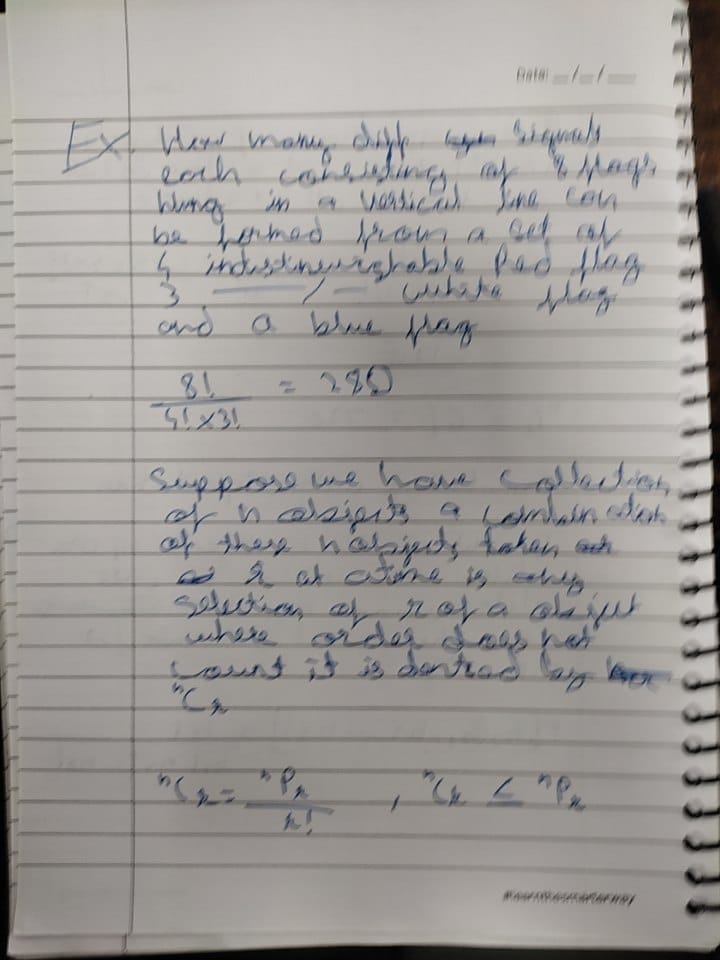 Date: __/__/__
Ex How many diff signals
each consisting of 8 flags
hung in a vertical line can
be formed from a set of
4 indistinguishable Red flag
3 —— / — white flag
and a blue flag
8! / 4! × 3! = 280
Suppose we have collection
of n objects a combination
of these n objects taken
r at atime is any
selection of r of a object
where order does not
count it is denoted by
ⁿCᵣ
ⁿCᵣ = ⁿPᵣ / r! , ⁿCᵣ ≤ ⁿPᵣ